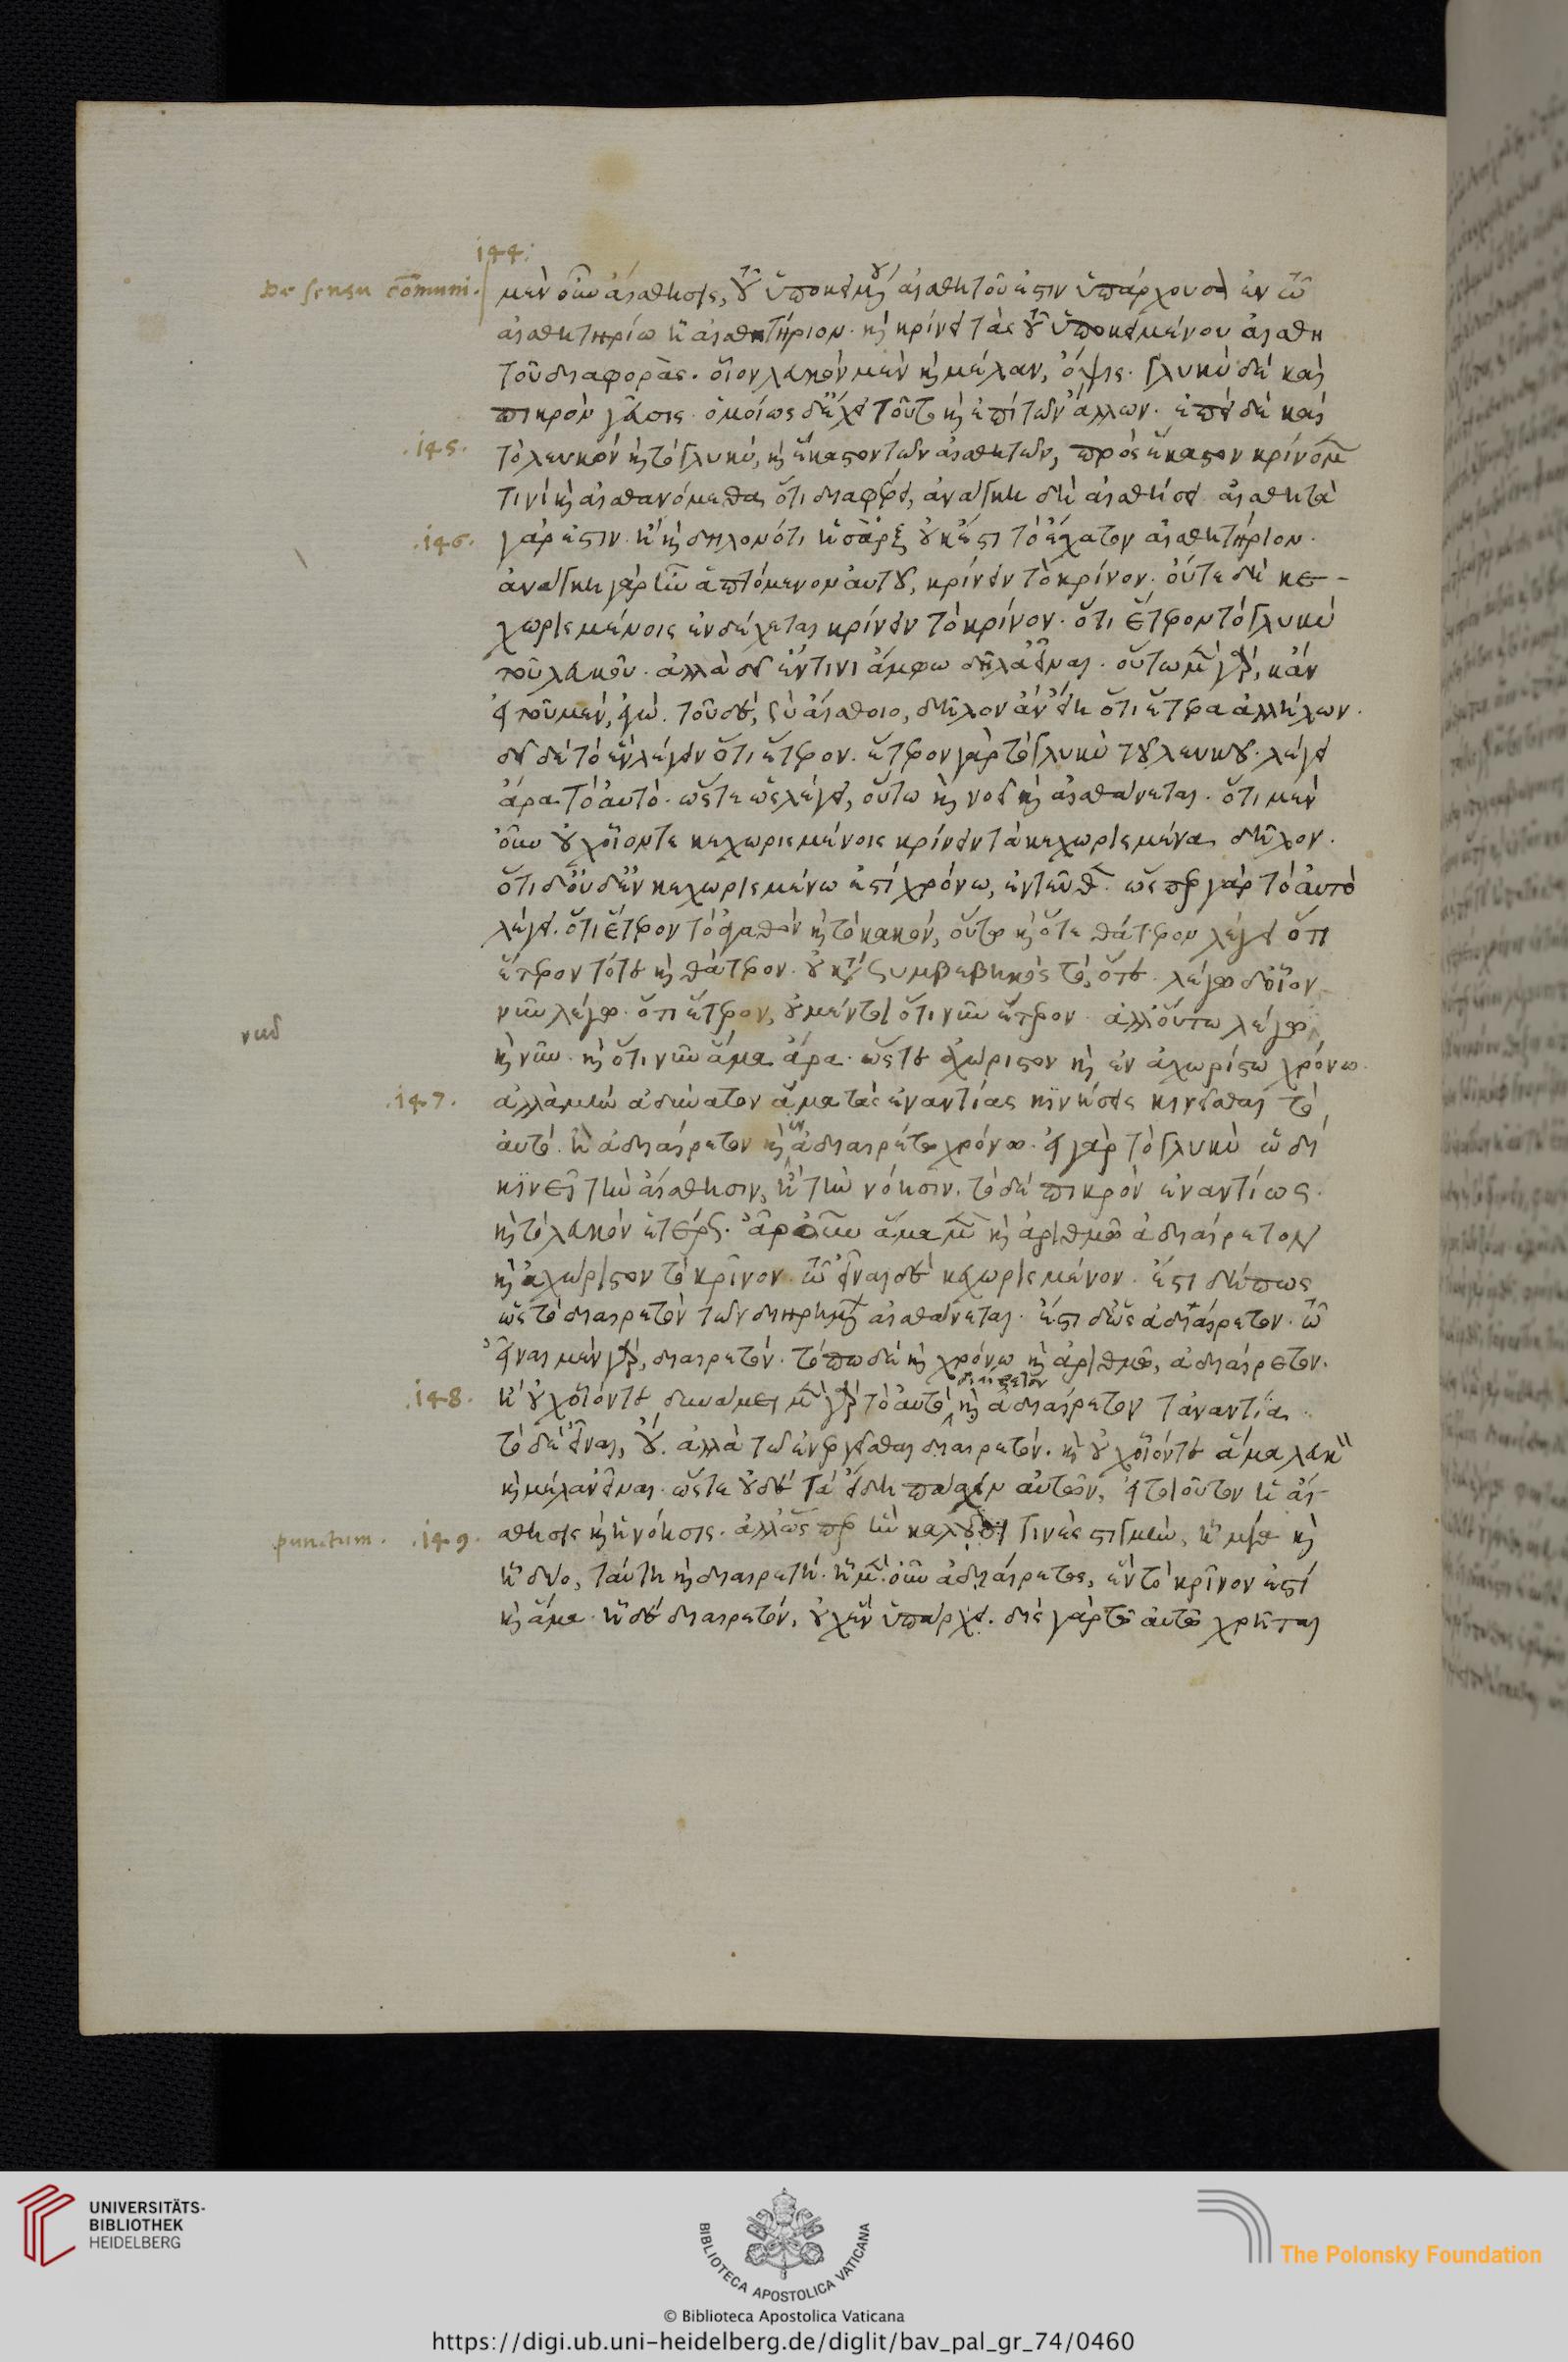 144.
De sensu cõmuni.
μὲν οὖν αἴσθησις, τοῦ ὑποκειμένου αἰσθητοῦ ἐστιν ὑπάρχουσα ἐν τῷ
αἰσθητηρίῳ ᾗ αἰσθητήριον· καὶ κρίνει τὰς τοῦ ὑποκειμένου αἰσθη
τοῦ διαφοράς. οἷον λευκὸν μὲν καὶ μέλαν, ὄψις. γλυκὺ δὲ καὶ
πικρὸν γεῦσις· ὁμοίως δ' ἔχει τοῦτο καὶ ἐπὶ τῶν ἄλλων. ἐπεὶ δὲ καὶ
.145. τὸ λευκὸν καὶ τὸ γλυκύ, καὶ ἕκαστον τῶν αἰσθητῶν, πρὸς ἕκαστον κρίνομεν
τινὶ καὶ αἰσθανόμεθα ὅτι διαφέρει, ἀνάγκη δὴ αἰσθήσει αἰσθητὰ
.146. γάρ ἐστιν. ᾗ καὶ δηλονότι ἡ σὰρξ οὐκ ἔστι τὸ ἔσχατον αἰσθητήριον.
ἀνάγκη γὰρ ἦν ἁπτόμενον αὐτοῦ, κρίνειν τὸ κρίνον. οὔτε δὴ κε-
χωρισμένοις ἐνδέχεται κρίνειν τὸ κρίνον· ὅτι ἕτερον τὸ γλυκὺ
τοῦ λευκοῦ. ἀλλὰ δεῖ ἑνί τινι ἄμφω δῆλα εἶναι. οὕτω μὲν γὰρ, κἂν
εἰ τοῦ μέν, ἐγώ. τοῦ δὲ, σὺ αἴσθοιο, δῆλον ἂν εἴη ὅτι ἕτερα ἀλλήλων.
δεῖ δὲ τὸ ἓν λέγειν ὅτι ἕτερον. ἕτερον γὰρ τὸ γλυκὺ τοῦ λευκοῦ. λέγει
ἄρα τὸ αὐτό. ὥστε ὡς λέγει, οὕτω καὶ νοεῖ καὶ αἰσθάνεται. ὅτι μὲν
οὖν οὐχ οἷόν τε κεχωρισμένοις κρίνειν τὰ κεχωρισμένα, δῆλον.
ὅτι δ' οὐδ' ἐν κεχωρισμένῳ ἐστὶ χρόνῳ, ἐντεῦθεν· ὥσπερ γὰρ τὸ αὐτὸ
λέγει. ὅτι ἕτερον τὸ ἀγαθὸν καὶ τὸ κακόν, οὕτω καὶ ὅτε θάτερον λέγει ὅτι
ἕτερον τότε καὶ θάτερον. οὐ κατὰ συμβεβηκὸς τὸ, ὅτε. λέγω δ' οἷον
νῦν λέγω. ὅτι ἕτερον, οὐ μέντοι ὅτι νῦν ἕτερον. ἀλλ' οὕτω λέγει,
νῦν
καὶ νῦν. καὶ ὅτι νῦν ἅμα ἄρα. ὥστε ἀχώριστον καὶ ἐν ἀχωρίστῳ χρόνῳ.
.147. ἀλλὰ μὴν ἀδύνατον ἅμα τὰς ἐναντίας κινήσεις κινεῖσθαι τὸ
αὐτό. ᾗ ἀδιαίρετον καὶ ἐν ἀδιαιρέτῳ χρόνῳ. εἰ γὰρ τὸ γλυκὺ ὡδὶ
κινεῖ τὴν αἴσθησιν, ἢ τὴν νόησιν. τὸ δὲ πικρὸν ἐναντίως.
καὶ τὸ λευκὸν ἑτέρως. ἆρ' οὖν ἅμα μὲν καὶ ἀριθμῷ ἀδιαίρετον
καὶ ἀχώριστον τὸ κρῖνον. τῷ εἶναι δὲ κεχωρισμένον. ἔστι δή πως
ὡς τὸ διαιρετὸν τῶν διῃρημένων αἰσθάνεται. ἔστι δ' ὡς ἀδιαίρετον. τῷ
εἶναι μὲν γὰρ, διαιρετόν. τόπῳ δὲ καὶ χρόνῳ καὶ ἀριθμῷ, ἀδιαίρετον.
διαίρετον
.148. ἢ οὐχ οἷόν τε δυνάμει μὲν γὰρ τὸ αὐτό, καὶ ἀδιαίρετον τἀναντία.
τὸ δὲ εἶναι, οὔ. ἀλλὰ τῷ ἐνεργεῖσθαι διαιρετόν. καὶ οὐχ οἷόν τε ἅμα λευκὸν
καὶ μέλαν εἶναι. ὥστε οὐδὲ τὰ εἴδη πάσχειν αὐτῶν, εἰ τοιοῦτον ἡ αἴ-
punctum. .149. σθησις καὶ ἡ νόησις. ἀλλ' ὥσπερ ἣν καλοῦσί τινες στιγμὴν, ᾗ μία καὶ
ᾗ δύο, ταύτῃ καὶ διαιρετή. ᾗ μὲν οὖν ἀδιαίρετος, ἓν τὸ κρῖνόν ἐστι
καὶ ἅμα. ᾗ δὲ διαιρετόν, οὐχ ἓν ὑπάρχει. δὶς γὰρ τῷ αὐτῷ χρῆται
UNIVERSITÄTS-
BIBLIOTHEK
HEIDELBERG
BIBLIOTECA APOSTOLICA VATICANA
The Polonsky Foundation
© Biblioteca Apostolica Vaticana
https://digi.ub.uni-heidelberg.de/diglit/bav_pal_gr_74/0460